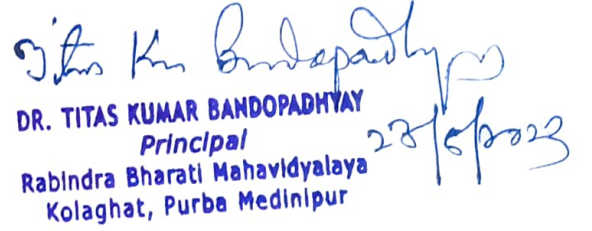 Titas Kr Bandopadhyay
DR. TITAS KUMAR BANDOPADHYAY
Principal
Rabindra Bharati Mahavidyalaya
Kolaghat, Purba Medinipur
23/6/2023